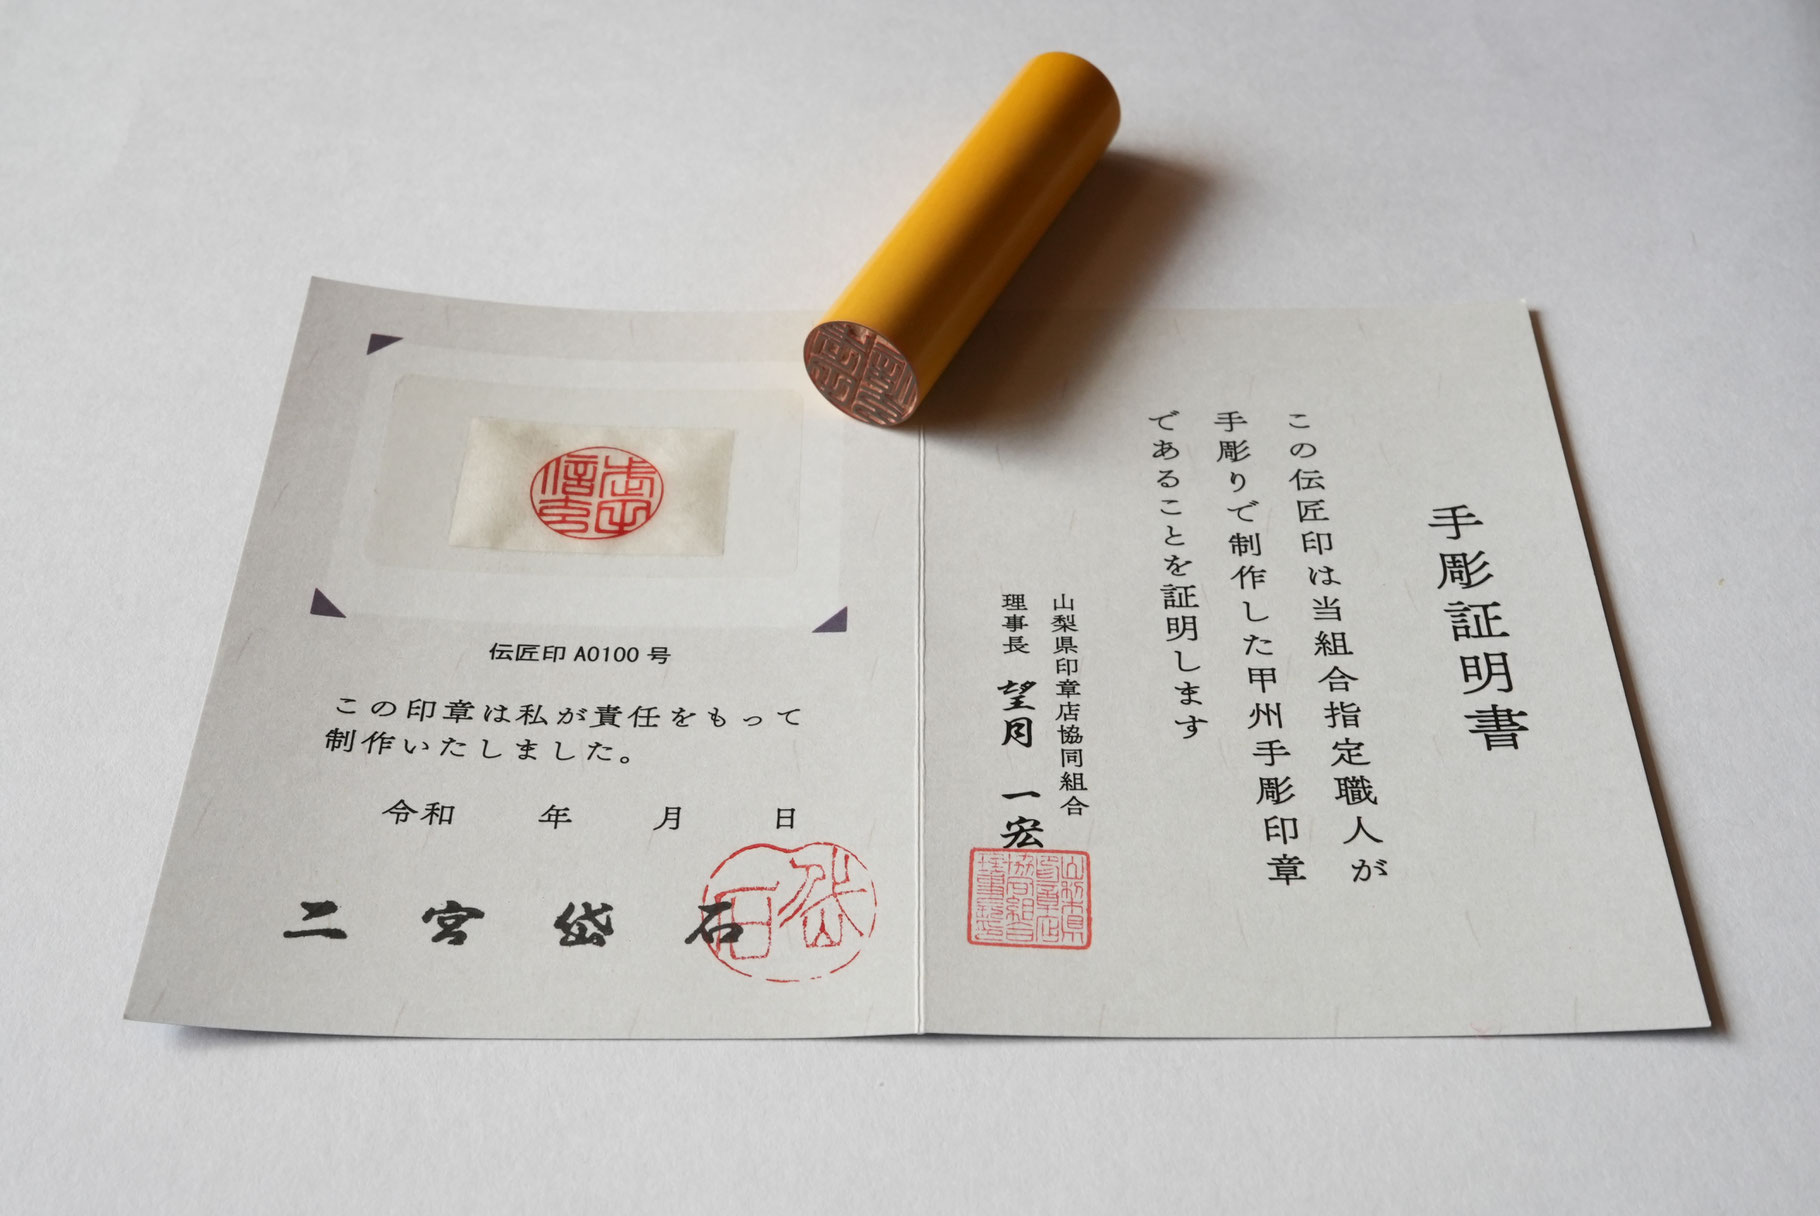 手彫証明書
この伝匠印は当組合指定職人が
手彫りで制作した甲州手彫印章
であることを証明します
山梨県印章店協同組合
理事長 望月 一宏
伝匠印 A0100 号
この印章は私が責任をもって
制作いたしました。
令和 年 月 日
二宮岱石
岱石